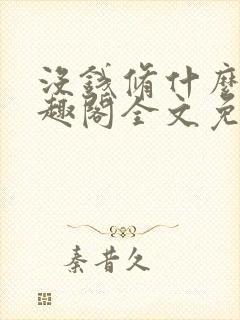 沒錢修什麼
趣閣全文免
秦昔久